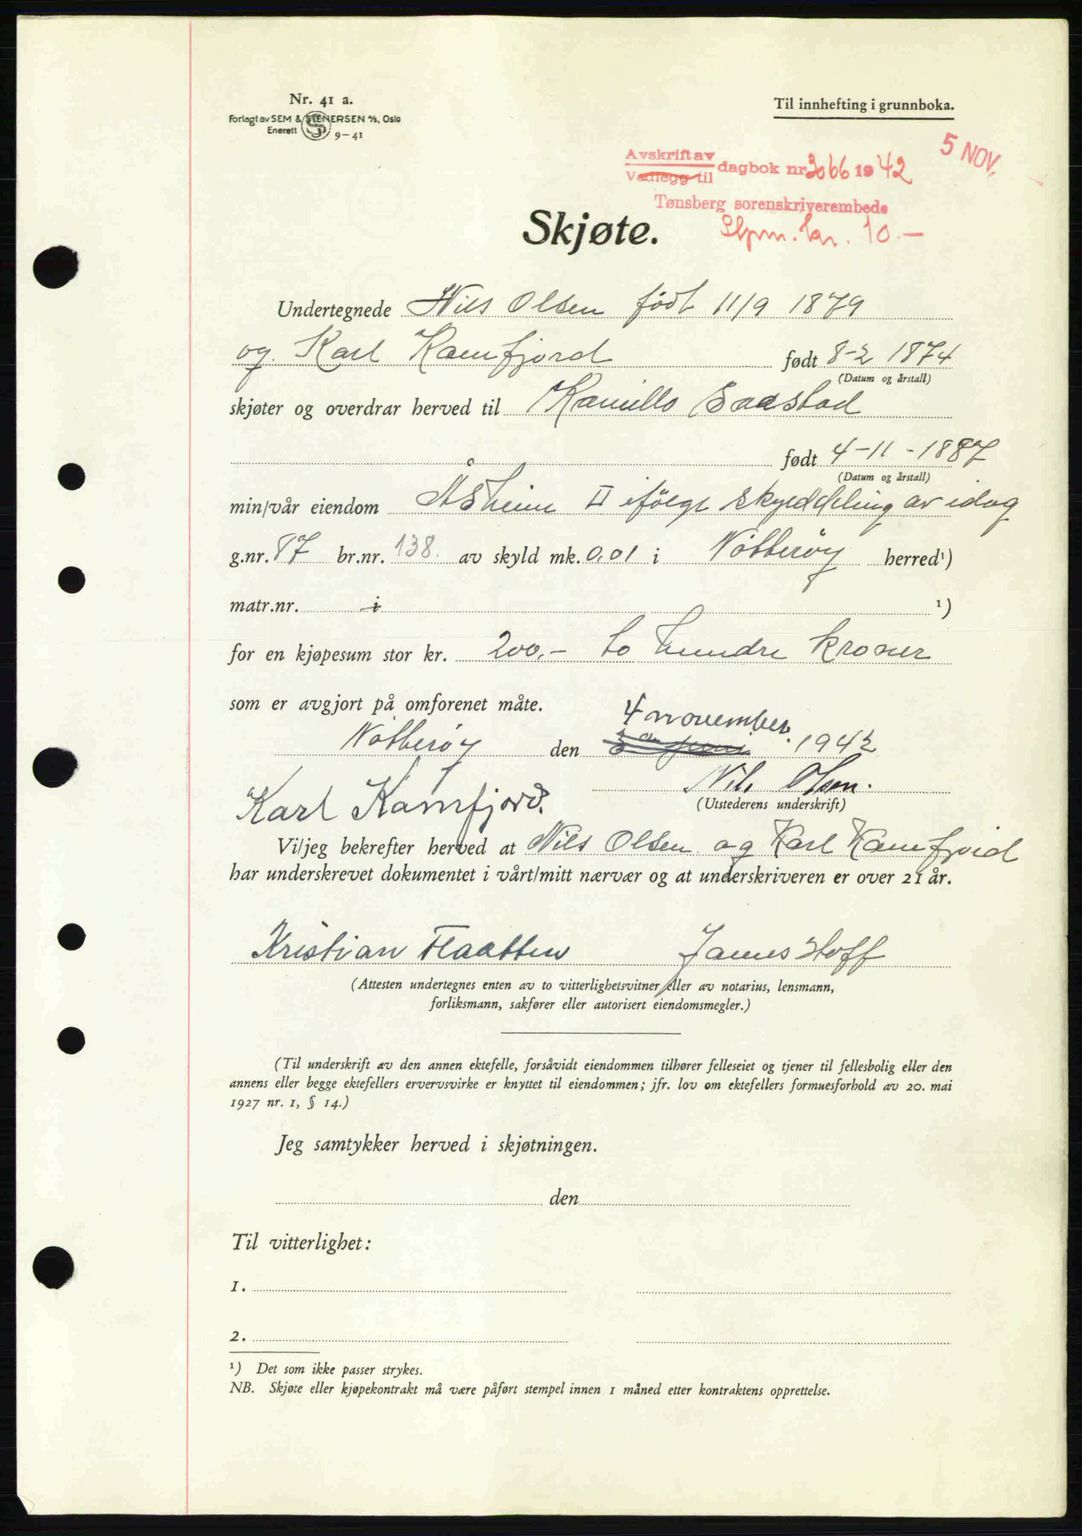 Nr. 41 a.
Forlagt av SEM & STENERSEN A/S, Oslo
Enerett 9-41
Til innhefting i grunnboka.
Avskrift av
Vedlegg til
dagbok nr 3066 1942
Tønsberg sorenskriverembede
5 NOV.
Stpm. kr. 10.-
Skjøte.
Undertegnede Nils Olsen født 11/9 1879
og Karl Kamfjord født 8-2 1874
(Datum og årstall)
skjøter og overdrar herved til Kamillo Saastad
født 4-11-1887
(Datum og årstall)
min/vår eiendom Åsheim II ifølge skylddeling av idag
g.nr. 87 br.nr. 138 av skyld mk. 0,01 i Nøtterøy herred¹)
matr.nr. i ¹)
for en kjøpesum stor kr. 200,- to hundre kroner
som er avgjort på omforenet måte.
4 november
Nøtterøy den 3 juni 1942
Nils Olsen.
Karl Kamfjord.
(Utstederens underskrift)
Vi/jeg bekrefter herved at Nils Olsen og Karl Kamfjord
har underskrevet dokumentet i vårt/mitt nærvær og at underskriveren er over 21 år.
Kristian Flaatten James Hoff
(Attesten undertegnes enten av to vitterlighetsvitner eller av notarius, lensmann,
forliksmann, sakfører eller autorisert eiendomsmegler.)
(Til underskrift av den annen ektefelle, forsåvidt eiendommen tilhører felleseiet og tjener til fellesbolig eller den
annens eller begge ektefellers ervervsvirke er knyttet til eiendommen; jfr. lov om ektefellers formuesforhold av 20. mai
1927 nr. 1, § 14.)
Jeg samtykker herved i skjøtningen.
den
Til vitterlighet:
1.
2.
¹) Det som ikke passer strykes.
NB. Skjøte eller kjøpekontrakt må være påført stempel innen 1 måned etter kontraktens opprettelse.